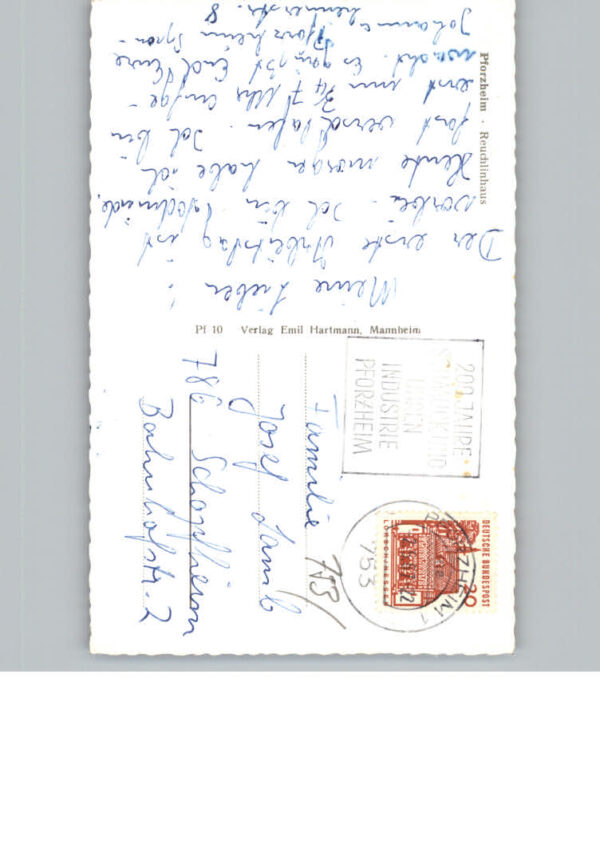 Pforzheim · Reuchlinhaus
Meine Lieben!
Der erste Arbeitstag ist
vorbei. Ich bin todmüde.
Heute morgen habe ich
fast verschlafen. Ich bin
erst um 3/4 7 Uhr aufge-
wacht. Es grüßt Euch Eure
Pforzheim
Johanna
Pf 10 Verlag Emil Hartmann, Mannheim
200 JAHRE
SCHMUCK UND
UHREN
INDUSTRIE
PFORZHEIM
DEUTSCHE BUNDESPOST
20
LORSCH/HESSEN
PFORZHEIM 1
753
753
Familie
Josef
786 Schopfheim
Bahnhofstr. 2